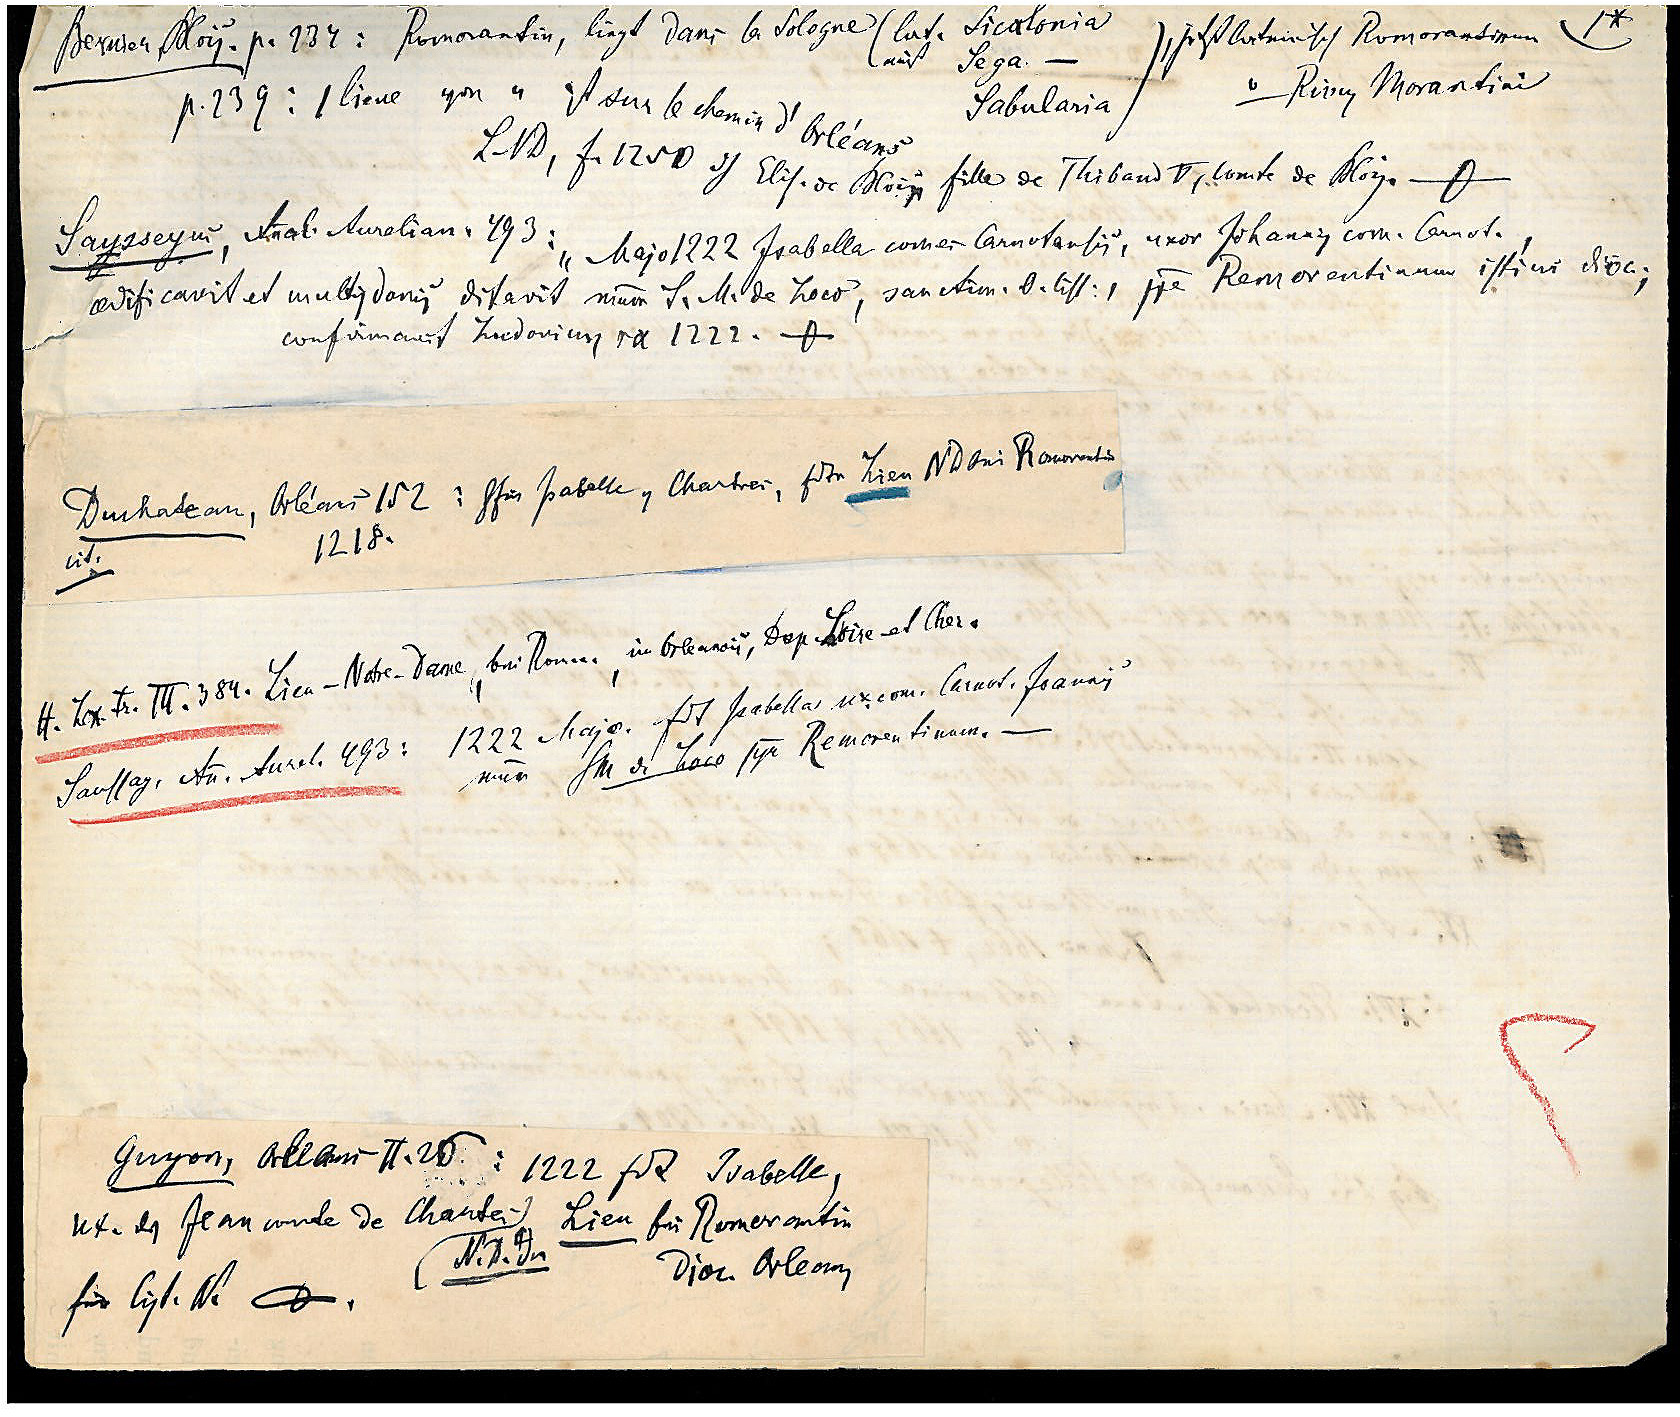 Bernier, Blois. p. 234: Romorantin, liegt dans la Sologne (lat. Sicalonia
nicht Sega. —
Sabularia), jetzt lateinisch Romorantinum 1*
" — Rivus Morantini
p. 239: 1 lieue von " ist sur le chemin d'Orléans
L-ND, f. 1250 Elis. de Blois fille de Thibaud V, comte de Blois. —
Saysseyus, Annal. Aurelian. 493: "Majo 1222 Isabella comes Carnotensis, uxor Johannis com. Carnot.,
ædificavit et multis donis ditavit S. M. de Loco, sanctim. O. Cist., Remorentinum istius dioc.;
confirmavit Ludovicus rex 1222. —
Duchateau, Orléans 152: Isabelle v Chartres, fdtr Lieu ND bei Romorantin
cit. 1218.
H. Lex. Fr. III. 384. Lieu-Notre-Dame, bei Rom., im Orleanois, Dep. Loire-et Cher.
Saussay. An. Aurel. 493: 1222 Majo. fdt Isabella ux com. Carnot. Joannis
SM de Loco Remorentinum. —
Guyon, Orleans II. : 1222 fdt Isabelle,
ux. des Jean comte de Chartres Lieu bei Romorantin
(N. D. du Dioc. Orleans
für Cist. N.